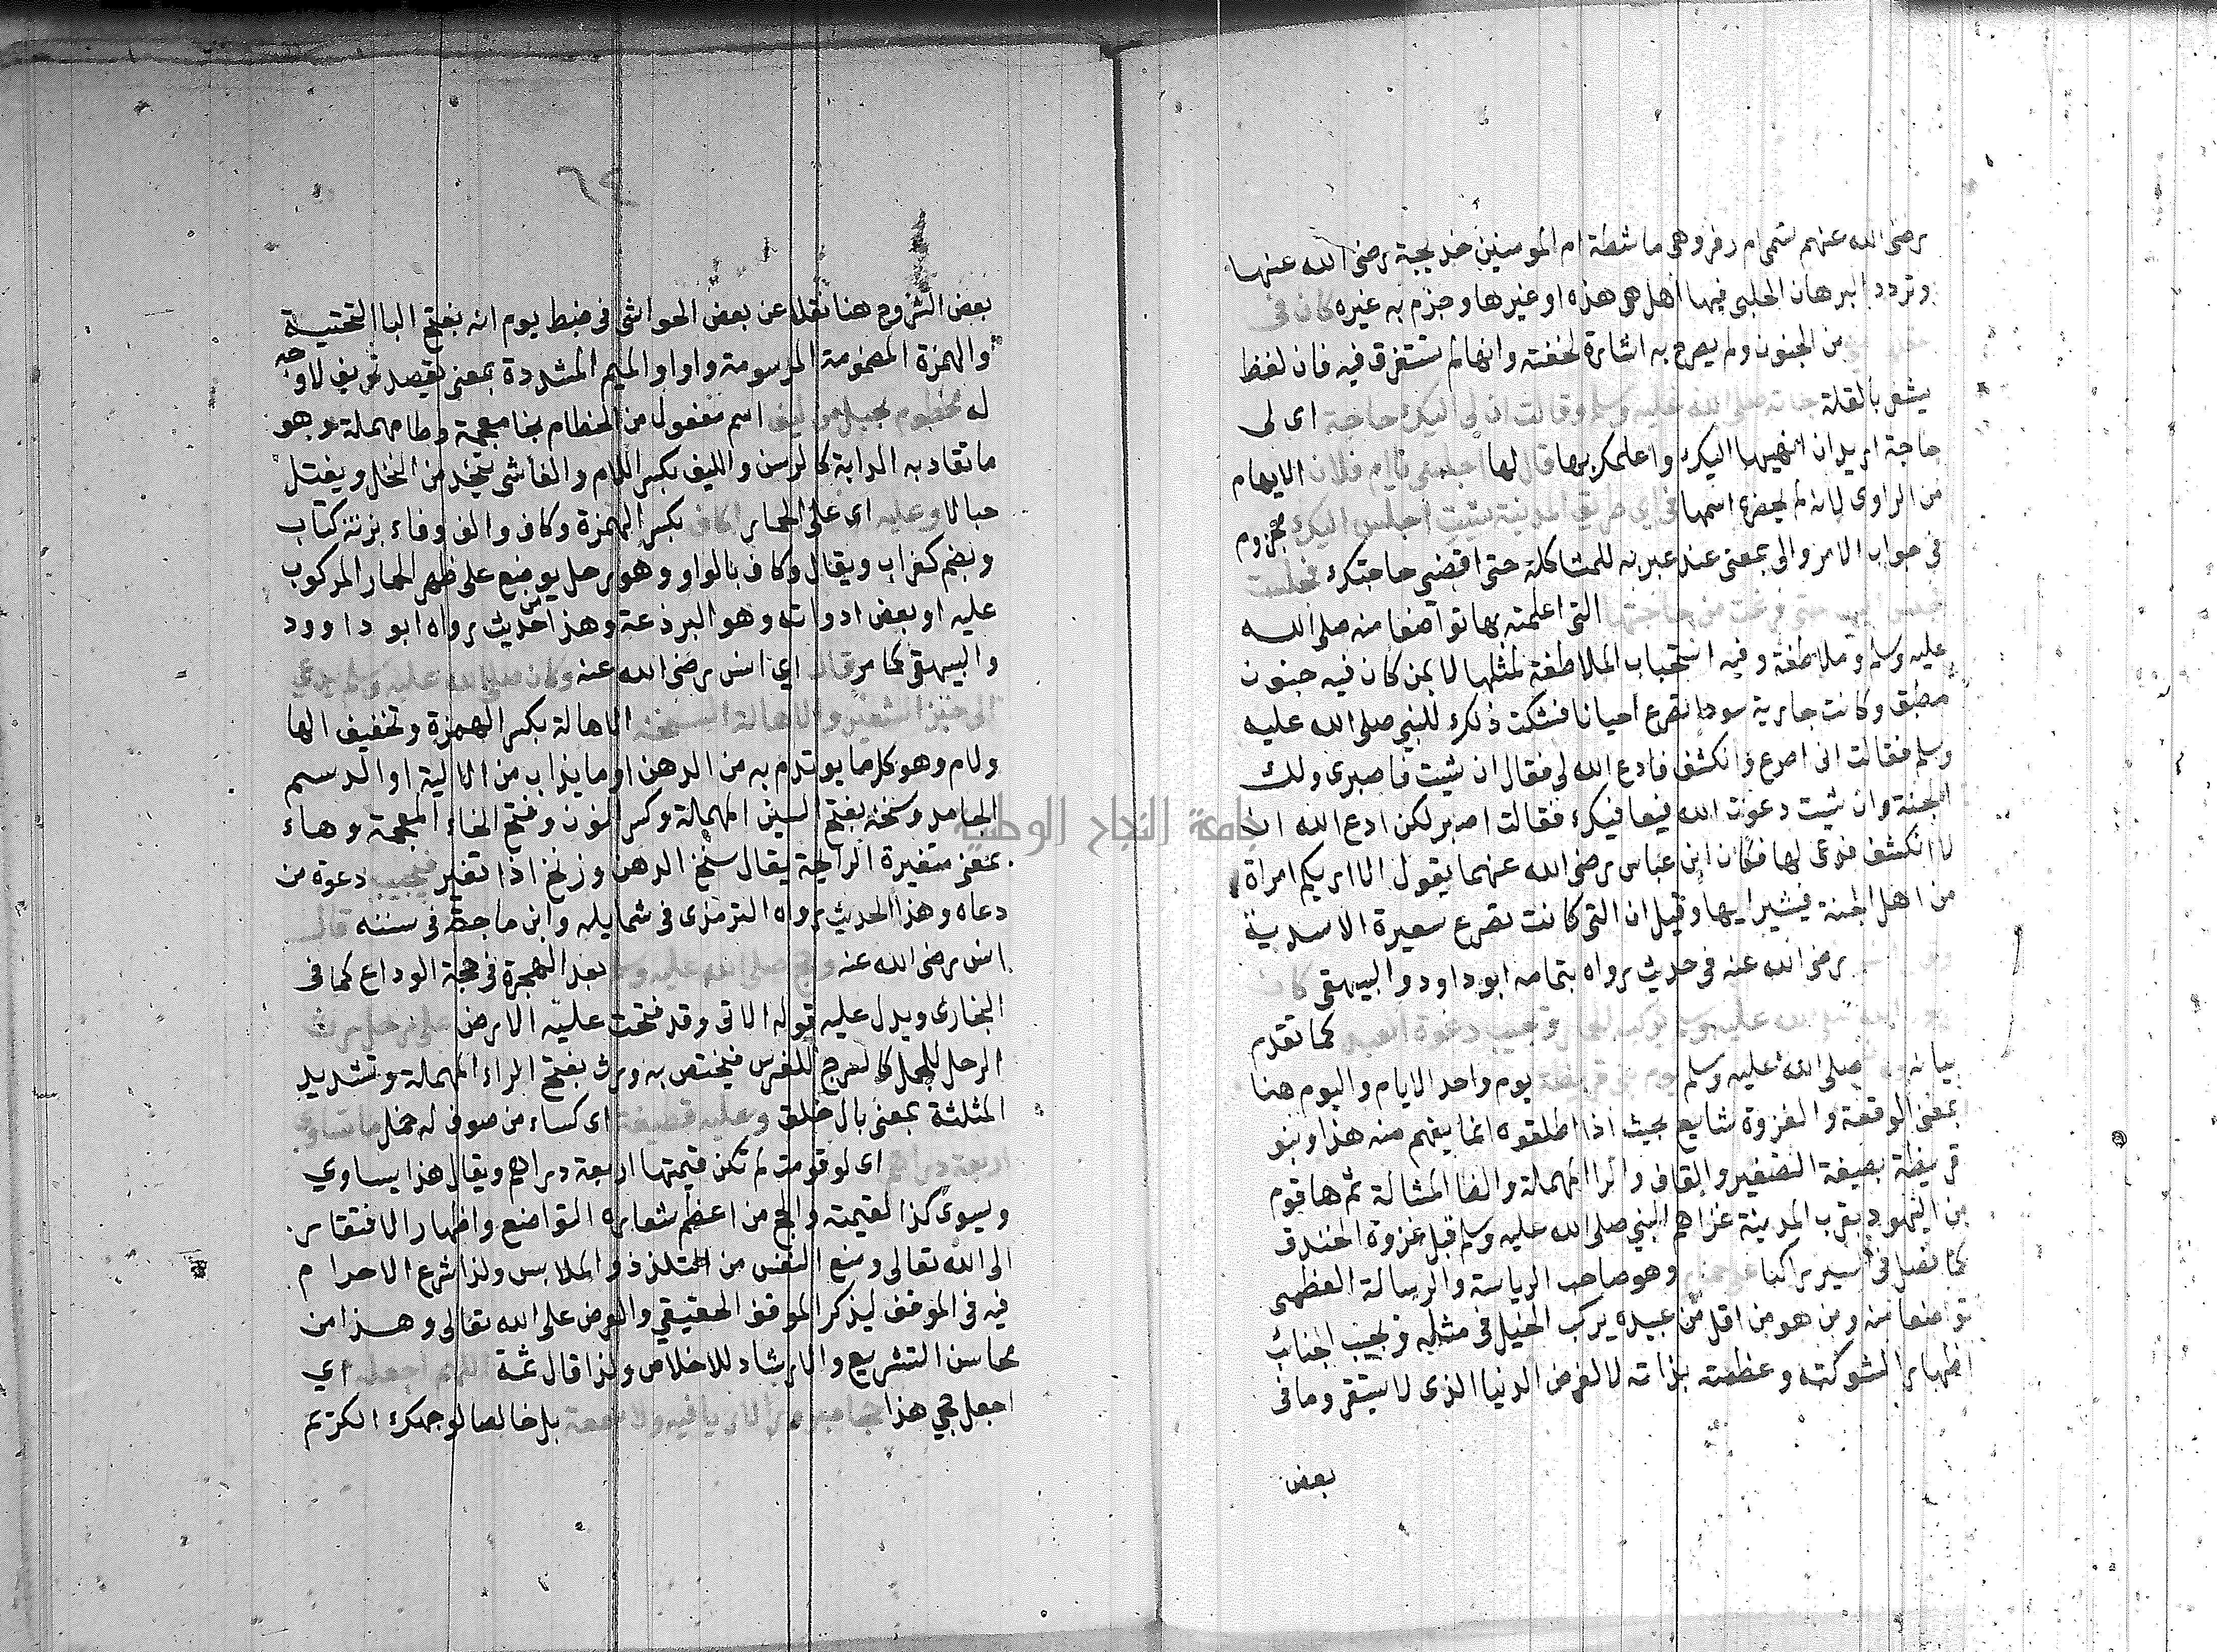 رضى الله عنهم تسمى ام زفر وهى ماشطة ام المومنين خديجة رضى الله عنها
وتردد البرهان الحلبى فيها اهل هى هذه او غيرها وجزم به غيره كان فى
من الجنون ولم يصرح به اشارة لخفته وانها لم تستغرق فيه فان لفظ
يشعر بالقلة جاته صلى الله عليه وسلم وقالت ان لى اليك حاجة اى لى
حاجة اريد ان انهيها اليك واعلمك بها قال لها اجلسى يا ام فلان الابهام
من الراوى لانه لم يحضره اسمها فى اى طريق المدينة شيت اجلس اليك مجزوم
فى جواب الامر والى بمعنى عند عبر به للمشاكلة حتى اقضى حاجتك فجلست
حتى فرغت من حاجتها التى اعلمته بها تواضعا منه صلى الله
عليه وسلم وملاطفة وفيه استحباب الملاطفة لمثلها لا بمن كان فيه جنون
مطبق وكانت جارية سودا تصرع احيانا فشكت ذلك للنبى صلى الله عليه
وسلم فقالت انى اصرع وانكشف فادع الله لى فقال ان شيت فاصبرى ولك
الجنة وان شيت دعوت الله فيعافيك فقالت اصبر لكن ادع الله ان
لا انكشف فدعى لها فكان ابن عباس رضى الله عنهما يقول الا اريكم امراة
من اهل الجنة فيشير ايها وقيل ان التى كانت تصرع سعيرة الاسدية
رضى الله عنه فى حديث رواه بتمامه ابو داود والبيهقى كان
صلى الله عليه وسلم يركب الحمار ويجيب دعوة العبد كما تقدم
بيانه صلى الله عليه وسلم يوم بنى قريظة يوم واحد الايام واليوم هنا
بمعنى الوقعة والغزوة شايع بحيث اذا اطلقوه انما يفهم منه هذا وبنو
قريظة بصيغة التصغير والقاف والرا المهملة والظا المشالة ثم ها قوم
من اليهود بقرب المدينة غزاهم النبى صلى الله عليه وسلم قبل غزوة الخندق
كما فصل فى السير راكبا على حمار وهو صاحب الرياسة والرسالة العظمى
تواضعا منه ومن هو من اقل من عبيده يركب الخيل فى مثله ويجيب الجنائب
اظهارا لشوكته وعظمته بذاته لا لغرض الدنيا الذى لا يستقر وما فى
بعض
بعض الشروح هنا نقلا عن بعض الحواشى فى ضبط يوم انه بفتح اليا التحتية
والهمزة المضمومة المرسومة واوا والميم المشددة بمعنى يقصد تحريف لا وجه
له مخطوم بحبل من ليف اسم مفعول من الخطام بخا معجمة وطا مهملة وهو
ما تقاد به الدابة كالرسن والليف بكسر اللام والفا شى يتخذ من النخل ويفتل
حبالا وعليه اى على الحمار اكاف بكسر الهمزة وكاف والف وفاء بزنة كتاب
وبضم كغراب ويقال وكاف بالواو وهو رحل يوضع على ظهر الحمار المركوب
عليه او بعض ادواته وهو البرذعة وهذا من حديث رواه ابو داوود
والبيهقى كما مر قال اي انس رضى الله عنه وكان صلى الله عليه وسلم يدعى
الى خبز الشعير والاهالة السنخة الاهالة بكسر الهمزة وتخفيف الها
ولام وهو كل ما يوتدم به من الدهن او ما يذاب من الالية او الدسم
الجامد وسنخة بفتح السين المهملة وكسر النون وفتح الخاء المعجمة وهاء
بمعنى متغيرة الرائحة يقال سنخ الدهن وزنخ اذا تغير فيجيب دعوة من
دعاه وهذا الحديث رواه الترمذى فى شمايله وابن ماجة فى سننه قال
انس رضى الله عنه وحج صلى الله عليه وسلم بعد الهجرة فى حجة الوداع كما فى
البخارى ويدل عليه قوله الاتى وقد فتحت عليه الارض على رحل رث
الرحل للجمل كالسرج للفرس فيختص به ورث بفتح الراء المهملة وتشديد
المثلثة بمعنى بال خلق وعليه قطيفة اى كساء من صوف له خمل ما تساوى
اربعة دراهم اى لو قومت لم تكن قيمتها اربعة دراهم ويقال هذا يساوي
ويسوى كذا لقيمته والحج من اعظم شعايره التواضع واظهار الافتقار
الى الله تعالى ومنع النفس من التلذذ والملابس ولذا شرع الاحرام
فيه فى الموقف ليذكر الموقف الحقيقي والعرض على الله تعالى وهذا من
محاسن التشريع والارشاد للاخلاص ولذا قال ثمة اللهم اجعله اي
اجعل حجي هذا حجا مبرورا لا ريا فيه ولا سمعة بل خالصا لوجهك الكريم
جامعة النجاح الوطنية